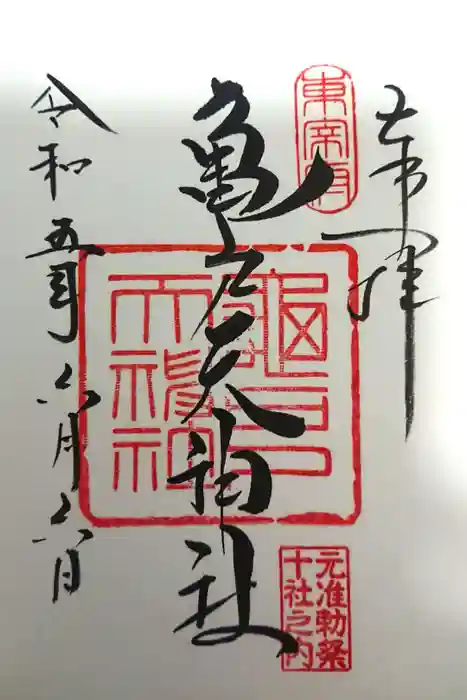 奉拝
東宰府
亀戸天神社
亀戸天神社
元准勅祭
十社之内
令和五年六月六日